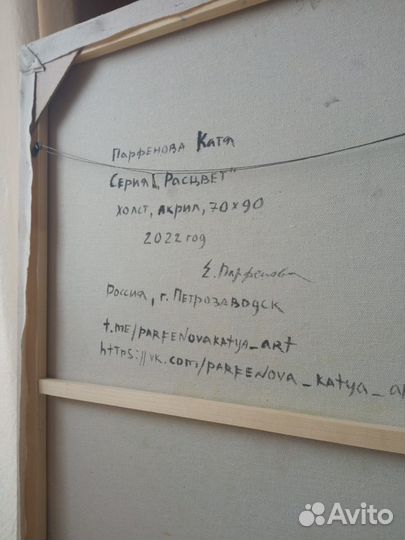 Парфенова Катя
Серия „Расцвет"
холст, акрил, 70х90
2022 год
Е. Парфенова
Россия, г. Петрозаводск
t.me/parfenovakatya_art
https://vk.com/parfenova_katya_a
Avito